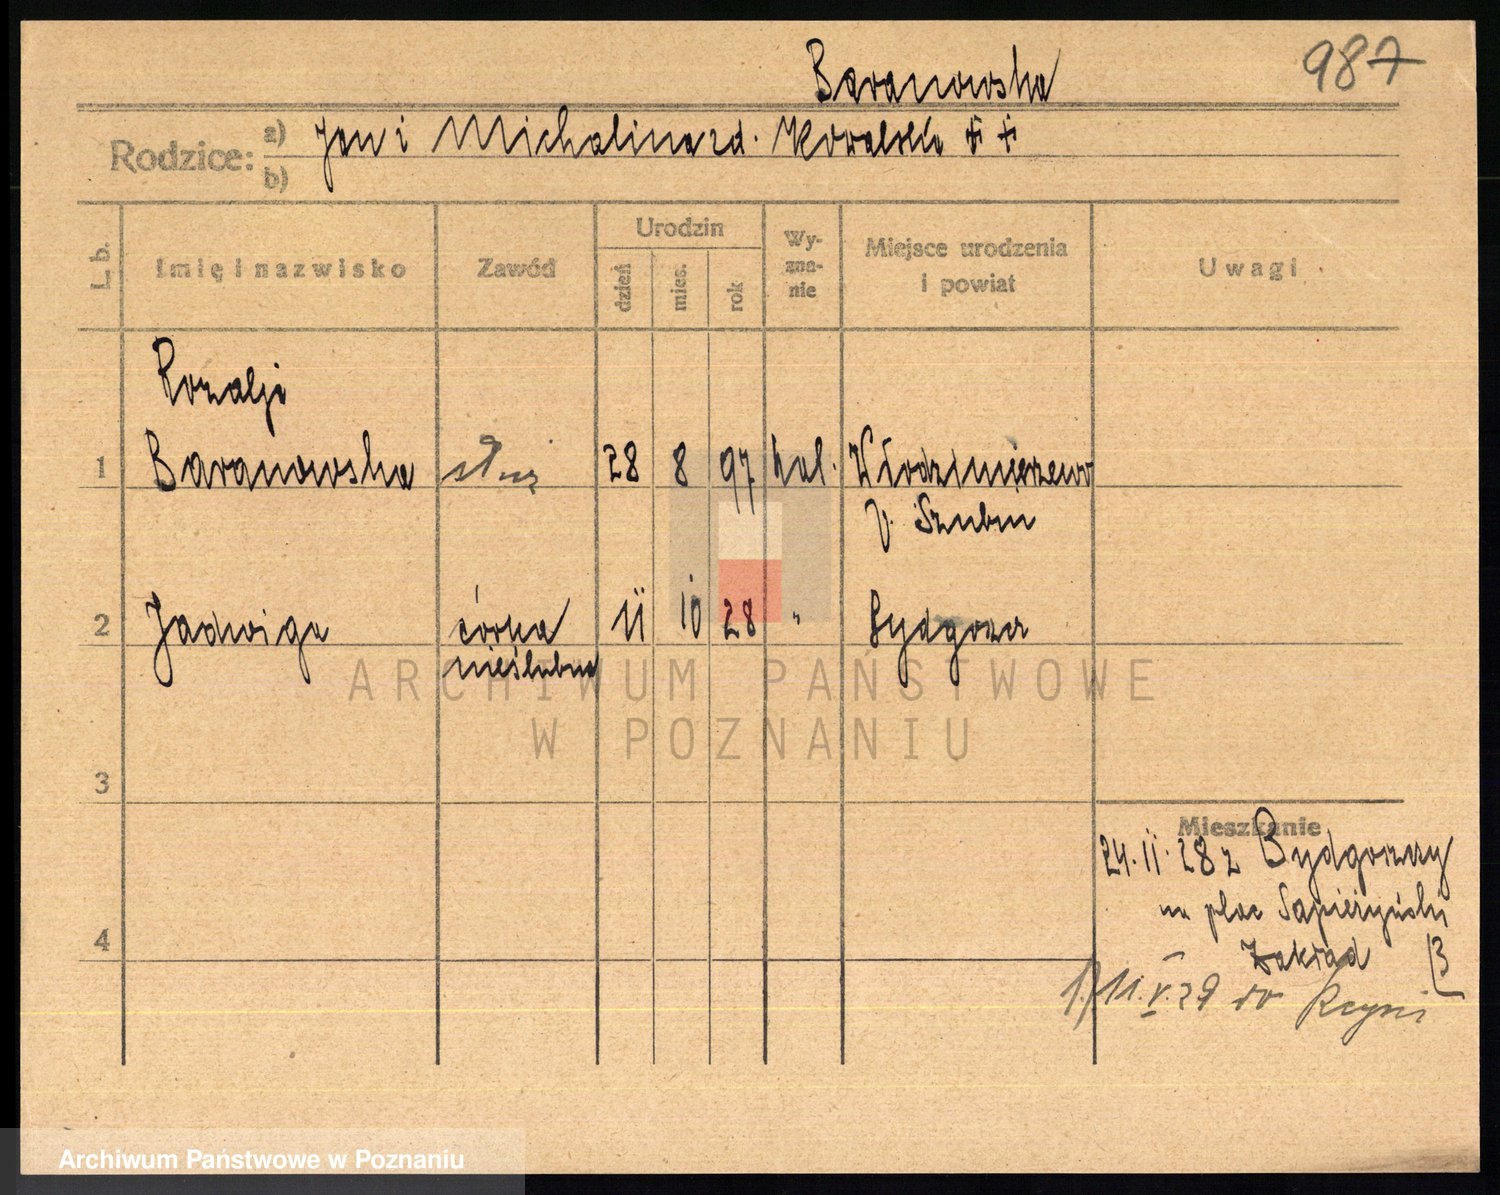 Baranowska
987
Rodzice: a) Jan i Michalina zd. Kowalska ++
b)
L. b. Imię i nazwisko Zawód Urodzin dzień mies. rok Wy-zna-nie Miejsce urodzenia i powiat Uwagi
Rozalja
1 Baranowska służ 28 8 97 kat. Włodzimierzewo
p. Szubin
2 Jadwiga córka 11 10 28 " Bydgoszcz
nieślubna
ARCHIWUM PAŃSTWOWE
W POZNANIU
3
Mieszkanie
24. 11. 28 z Bydgoszczy
na plac Sapieżyński
4
Zakład
1/ 11. V. 29 do Kcyni
Archiwum Państwowe w Poznaniu